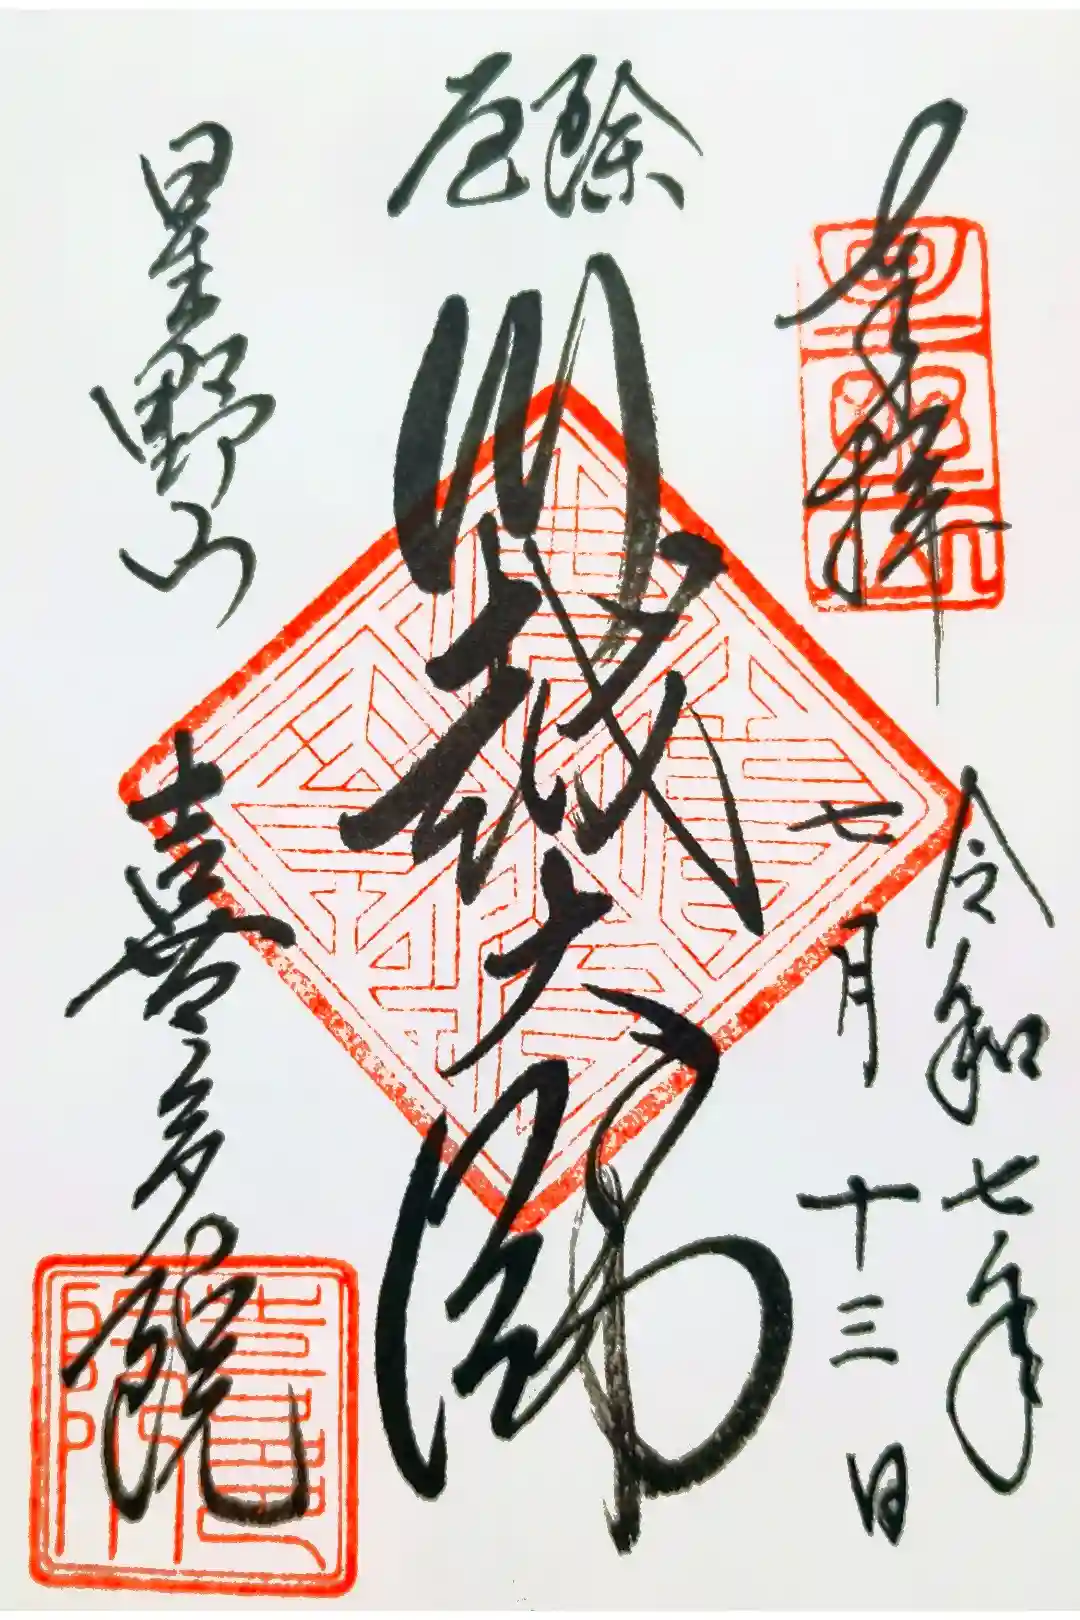 奉拝
令和七年
七月十三日
厄除
川越大師
星野山
喜多院
喜多院